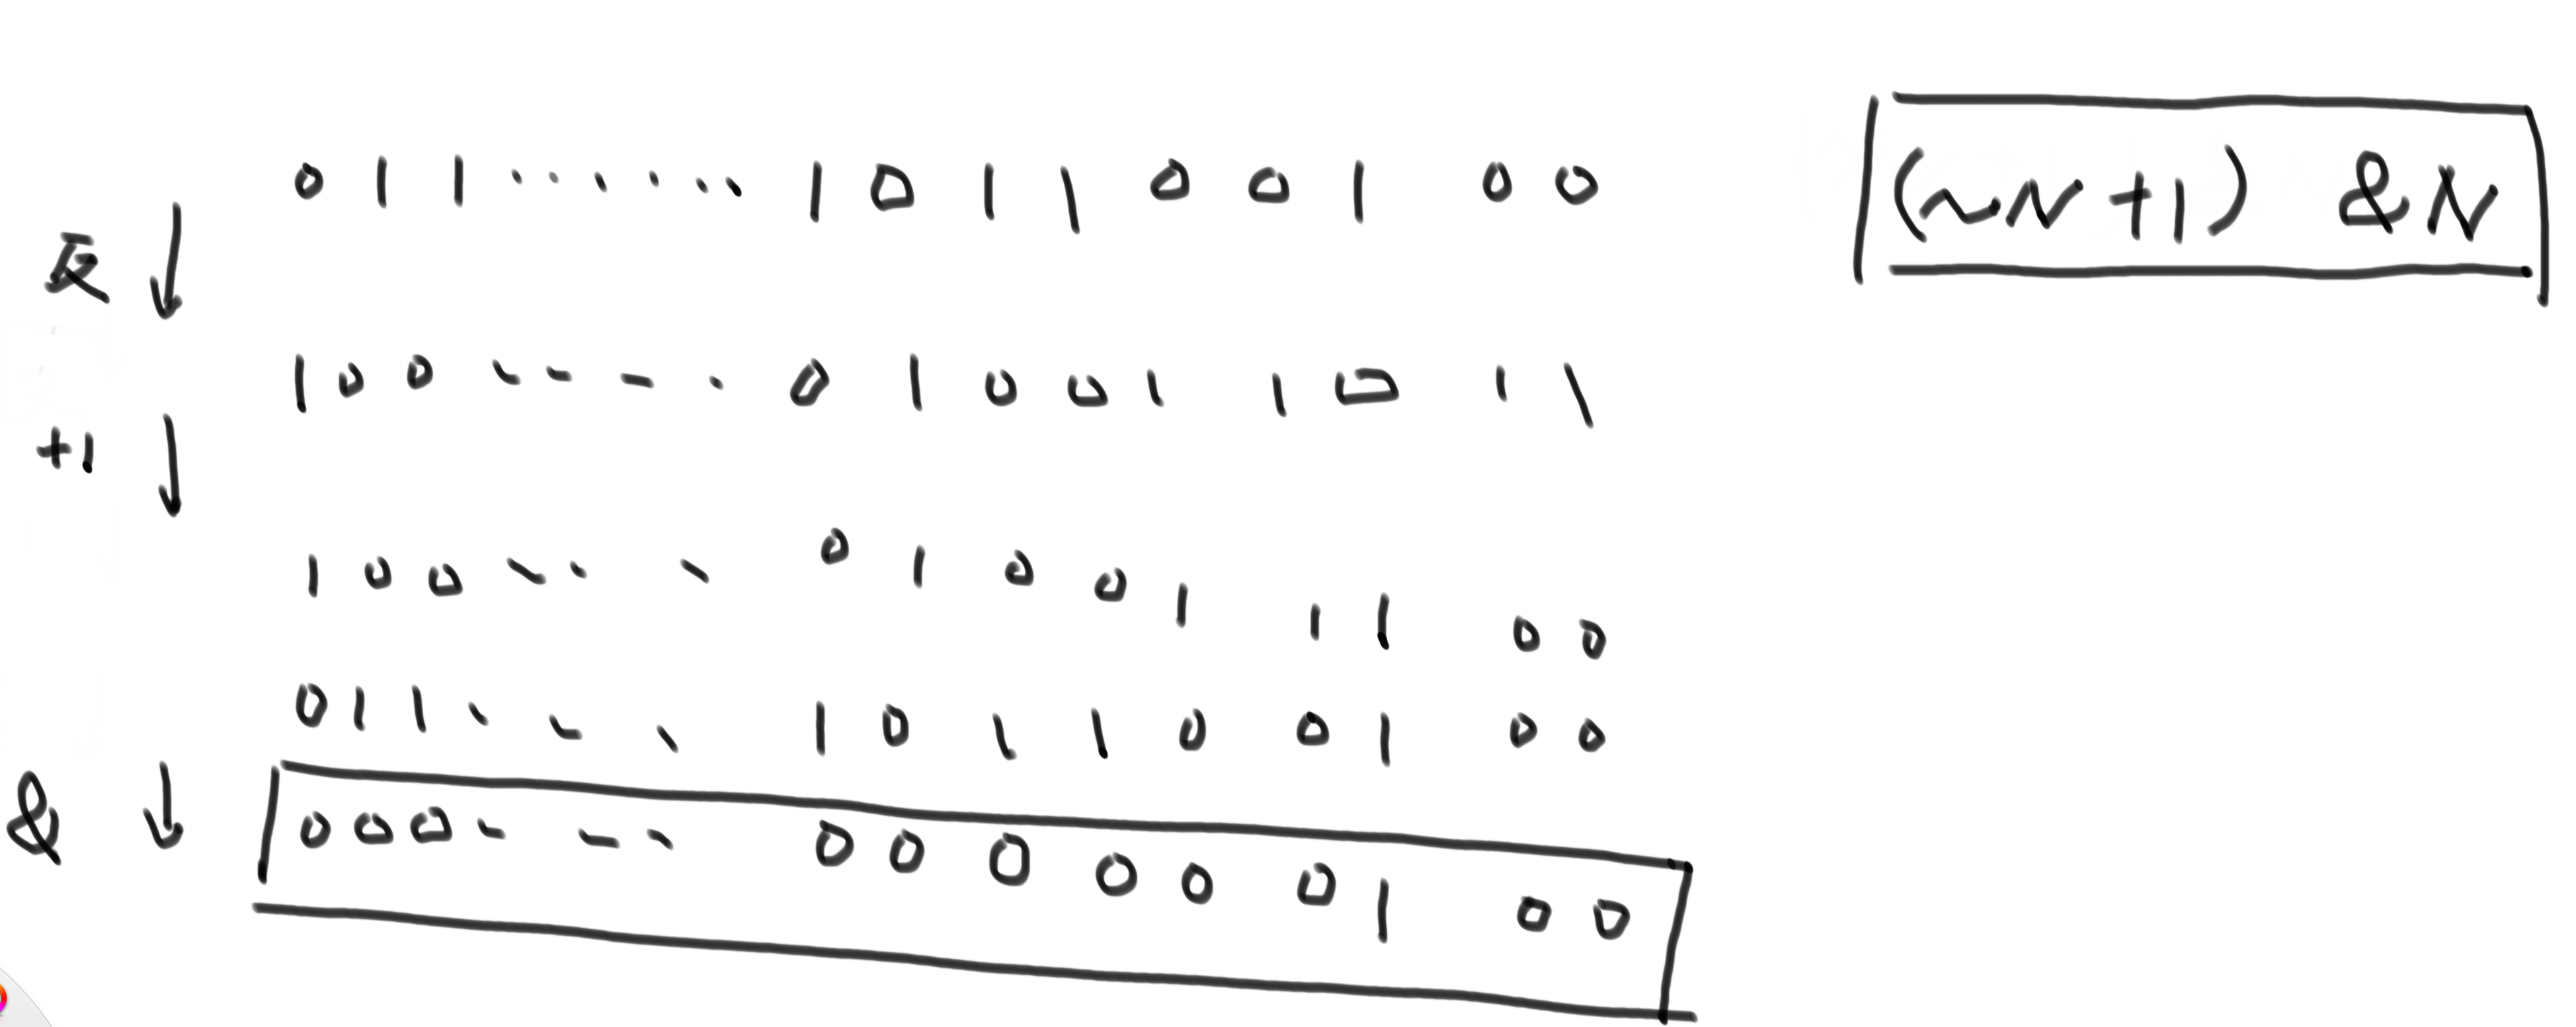 011......101100100
(~N+1) &N
反 ↓
100.....010011011
+1 ↓
100....010011100
011....101100100
& ↓
000....000000100